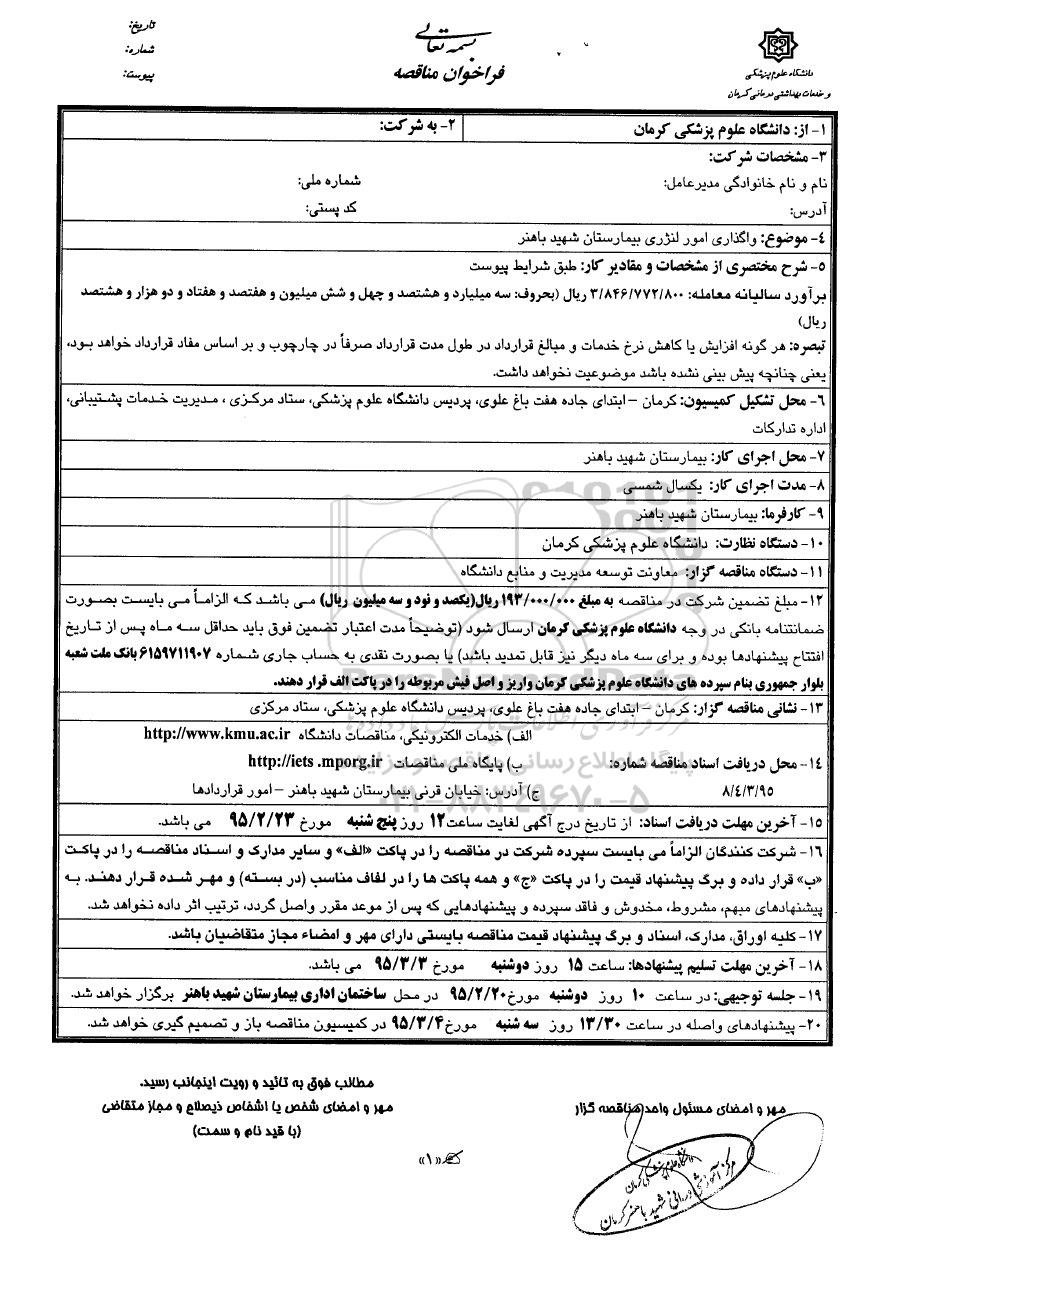 تاریخ:
شماره:
پیوست:
بسمه تعالی
فراخوان مناقصه
دانشگاه علوم پزشکی
و خدمات بهداشتی درمانی کرمان
۱- از: دانشگاه علوم پزشکی کرمان
۲- به شرکت:
۳- مشخصات شرکت:
نام و نام خانوادگی مدیرعامل: شماره ملی:
آدرس: کد پستی:
۴- موضوع: واگذاری امور لنژری بیمارستان شهید باهنر
۵- شرح مختصری از مشخصات و مقادیر کار: طبق شرایط پیوست
برآورد سالیانه معامله: ۳/۸۴۶/۷۷۲/۸۰۰ ریال (بحروف: سه میلیارد و هشتصد و چهل و شش میلیون و هفتصد و هفتاد و دو هزار و هشتصد
ریال)
تبصره: هر گونه افزایش یا کاهش نرخ خدمات و مبالغ قرارداد در طول مدت قرارداد صرفاً در چارچوب و بر اساس مفاد قرارداد خواهد بود،
یعنی چنانچه پیش بینی نشده باشد موضوعیت نخواهد داشت.
۶- محل تشکیل کمیسیون: کرمان – ابتدای جاده هفت باغ علوی، پردیس دانشگاه علوم پزشکی، ستاد مرکزی ، مدیریت خدمات پشتیبانی،
اداره تدارکات
۷- محل اجرای کار: بیمارستان شهید باهنر
۸- مدت اجرای کار: یکسال شمسی
۹- کارفرما: بیمارستان شهید باهنر
۱۰- دستگاه نظارت: دانشگاه علوم پزشکی کرمان
۱۱- دستگاه مناقصه گزار: معاونت توسعه مدیریت و منابع دانشگاه
۱۲- مبلغ تضمین شرکت در مناقصه به مبلغ ۱۹۳/۰۰۰/۰۰۰ ریال(یکصد و نود و سه میلیون ریال) می باشد که الزاماً می بایست بصورت
ضمانتنامه بانکی در وجه دانشگاه علوم پزشکی کرمان ارسال شود (توضیحاً مدت اعتبار تضمین فوق باید حداقل سه ماه پس از تاریخ
افتتاح پیشنهادها بوده و برای سه ماه دیگر نیز قابل تمدید باشد) یا بصورت نقدی به حساب جاری شماره ۶۱۵۹۷۱۱۹۰۷ بانک ملت شعبه
بلوار جمهوری بنام سپرده های دانشگاه علوم پزشکی کرمان واریز و اصل فیش مربوطه را در پاکت الف قرار دهند.
۱۳- نشانی مناقصه گزار: کرمان – ابتدای جاده هفت باغ علوی، پردیس دانشگاه علوم پزشکی، ستاد مرکزی
الف) خدمات الکترونیکی، مناقصات دانشگاه http://www.kmu.ac.ir
۱۴- محل دریافت اسناد مناقصه شماره: ب) پایگاه ملی مناقصات http://iets .mporg.ir
۸/۴/۳/۹۵ ج) آدرس: خیابان قرنی بیمارستان شهید باهنر – امور قراردادها
۱۵- آخرین مهلت دریافت اسناد: از تاریخ درج آگهی لغایت ساعت ۱۲ روز پنج شنبه مورخ ۹۵/۲/۲۳ می باشد.
۱۶- شرکت کنندگان الزاماً می بایست سپرده شرکت در مناقصه را در پاکت «الف» و سایر مدارک و اسناد مناقصه را در پاکت
«ب» قرار داده و برگ پیشنهاد قیمت را در پاکت «ج» و همه پاکت ها را در لفاف مناسب (در بسته) و مهر شده قرار دهند. به
پیشنهادهای مبهم، مشروط، مخدوش و فاقد سپرده و پیشنهادهایی که پس از موعد مقرر واصل گردد، ترتیب اثر داده نخواهد شد.
۱۷- کلیه اوراق، مدارک، اسناد و برگ پیشنهاد قیمت مناقصه بایستی دارای مهر و امضاء مجاز متقاضیان باشد.
۱۸- آخرین مهلت تسلیم پیشنهادها: ساعت ۱۵ روز دوشنبه مورخ ۹۵/۳/۳ می باشد.
۱۹- جلسه توجیهی: در ساعت ۱۰ روز دوشنبه مورخ ۹۵/۲/۲۰ در محل ساختمان اداری بیمارستان شهید باهنر برگزار خواهد شد.
۲۰- پیشنهادهای واصله در ساعت ۱۳/۳۰ روز سه شنبه مورخ ۹۵/۳/۴ در کمیسیون مناقصه باز و تصمیم گیری خواهد شد.
مطالب فوق به تائید و رویت اینجانب رسید.
مهر و امضای مسئول واحد مناقصه گزار
مهر و امضای شخص یا اشخاص ذیصلاح و مجاز متقاضی
(با قید نام و سمت)
«۱»
دانشگاه علوم پزشکی کرمان
مرکز آموزشی درمانی شهید باهنر کرمان
۰۲۱-۸۸۳۴۹۶۷۰-۵